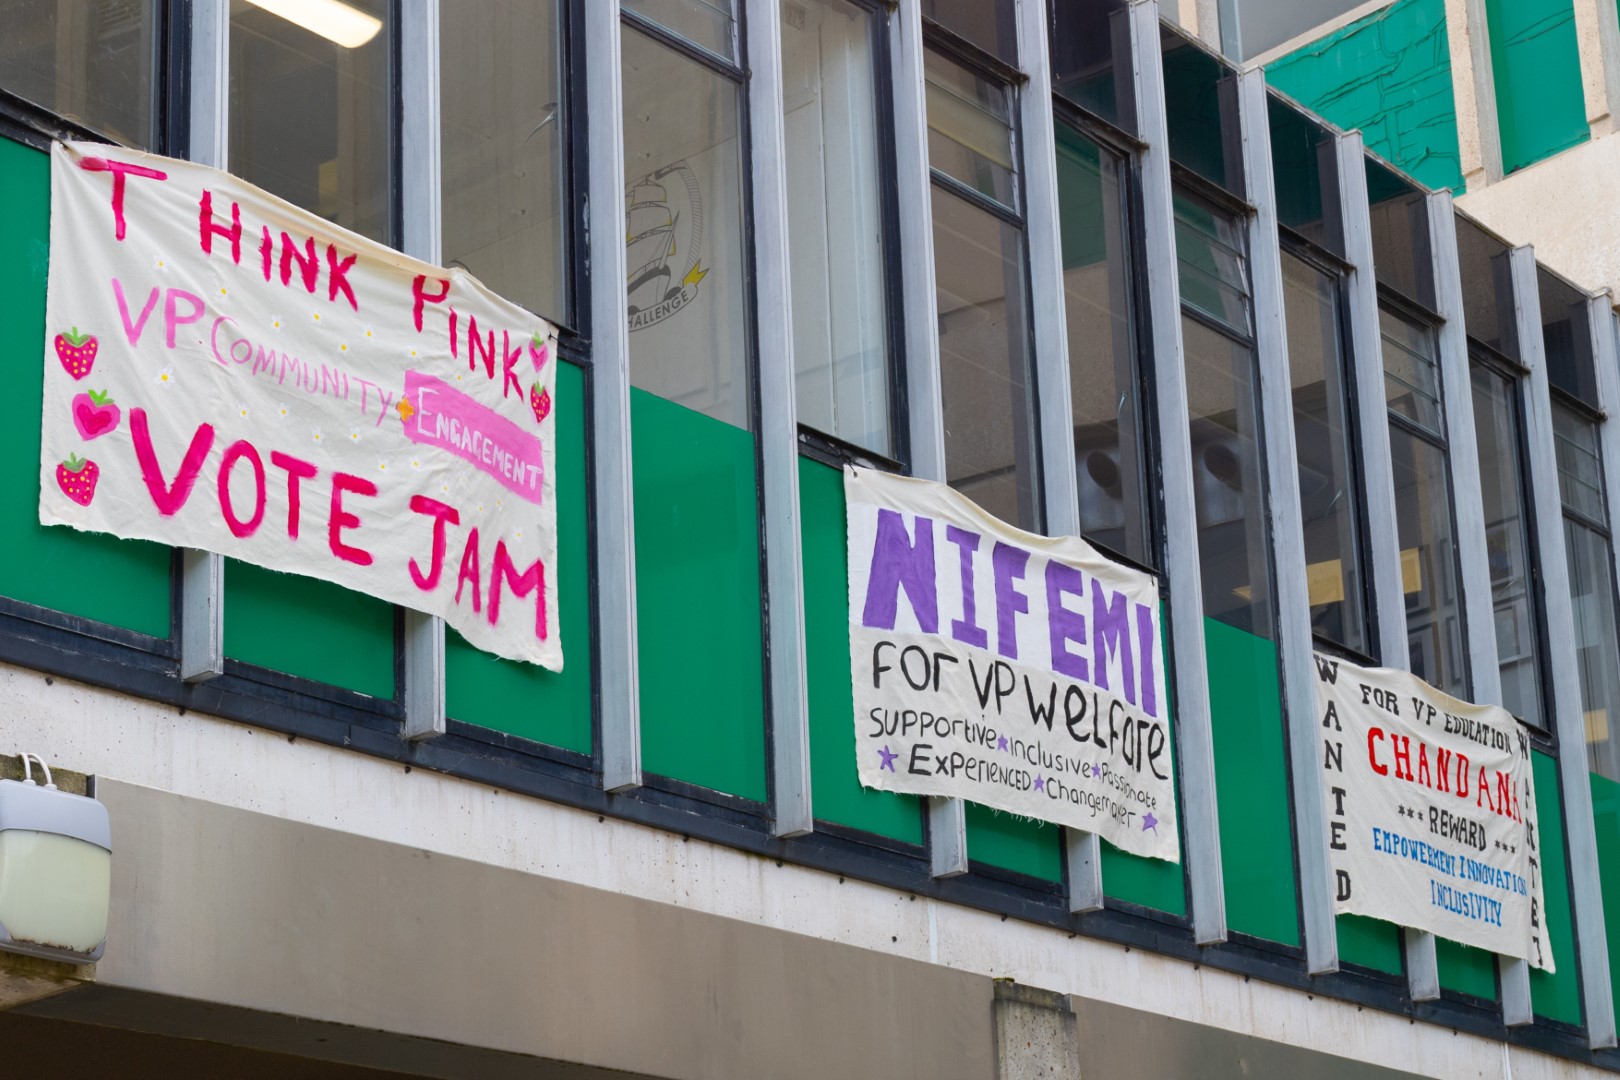 THINK PINK
VP COMMUNITY
ENGAGEMENT
VOTE JAM
HALLENGE
NIFEMI
FOR VP WELFARE
SUPPORTIVE★INCLUSIVE★PASSIONATE
★EXPERIENCED★CHANGEMAKER★
WANTED
FOR VP EDUCATION
CHANDANA
*** REWARD ***
EMPOWERMENT INNOVATION
INCLUSIVITY
WANTED